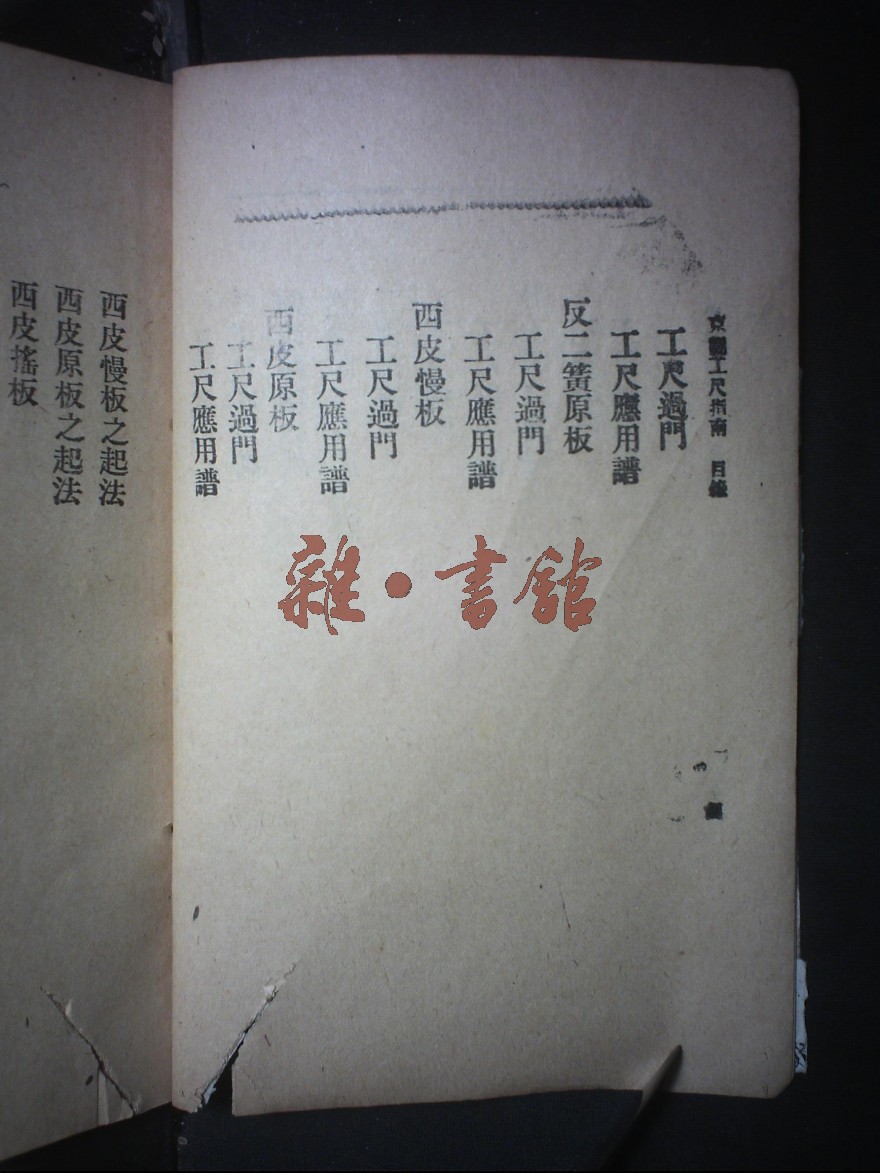 京調工尺指南 目錄
工尺過門
工尺應用譜
反二簧原板
工尺過門
工尺應用譜
西皮慢板
工尺過門
工尺應用譜
西皮原板
工尺過門
工尺應用譜
西皮慢板之起法
西皮原板之起法
西皮搖板
雜・書館